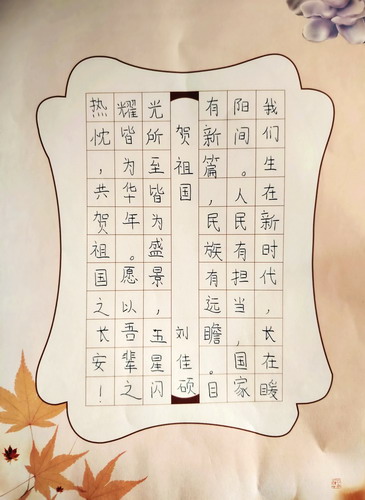 我们生在新时代，长在暖
阳间。人民有担当，国家
有新篇，民族有远瞻。目
贺祖国 刘佳硕
光所至皆为盛景，五星闪
耀皆为华年。愿以吾辈之
热忱，共贺祖国之长安！